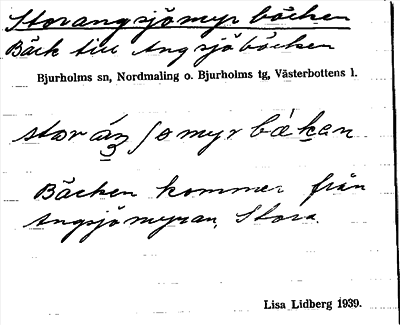 Storangsjömyrbäcken
Bäck till Angsjöbäcken
Bjurholms sn, Nordmaling o. Bjurholms tg, Västerbottens l.
Bäcken kommer från
Angsjömyran, Stora.
Lisa Lidberg 1939.